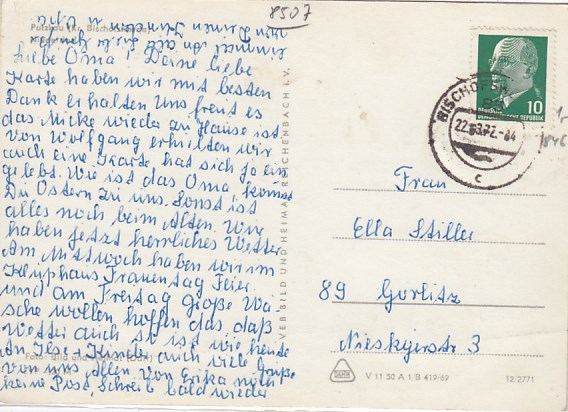 8507
Putzkau (Kr. Bischofswerda)
Liebe Oma! Deine liebe
Karte haben wir mit besten
Dank erhalten Uns freut es
das Micke wieder zu Hause ist
von Wolfgang erhielten wir
auch eine Karte, hat sich so ein
gelebt. Wie ist das Oma, kommst
Du Ostern zu uns. Sonst ist
alles noch beim Alten. Wir
haben jetzt herrliches Wetter
Am Mittwoch haben wir im
Klubhaus Frauentag Feier
und am Freitag große Wä-
sche wollen hoffen das, daß
Wetter auch so ist wie heute
An Ilse + Kinder auch viele Grüße
von uns allen von Erika
keine Post, Schreib bald wieder
VEB BILD UND HEIMAT REICHENBACH I. V.
10
DEUTSCHE DEMOKRATISCHE REPUBLIK
BISCHOFSW
22
72.-84
c
Frau
Ella Stiller
89 Görlitz
Nieskyerstr 3
V 11 50 A 1/B 419/69
12/2771